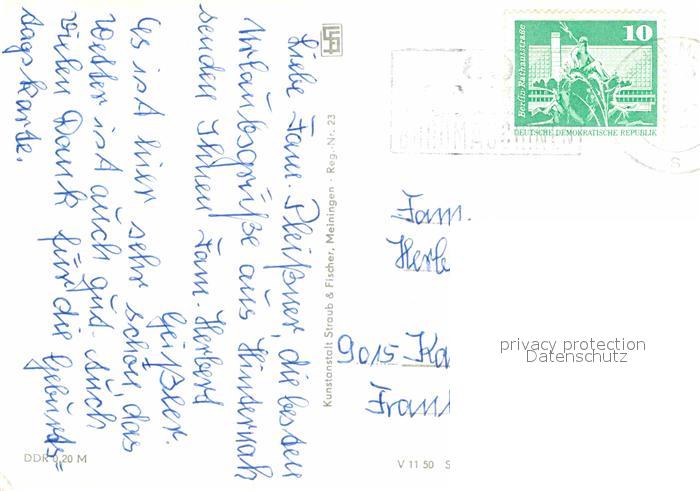 Liebe Fam. Pleißner, die besten
Urlaubsgrüße aus Hinternah
senden Ihnen Fam. Herbert
Geißler.
Es ist hier sehr schön, das
Wetter ist auch gut. Auch
vielen Dank für die Geburts=
tagskarte.
DDR 0,20 M
Kunstanstalt Straub & Fischer, Meiningen · Reg.-Nr. 23
10
Berlin, Rathausstraße
DEUTSCHE DEMOKRATISCHE REPUBLIK
Fam.
Herb
9015 Ka
Fran
V 11 50 S
privacy protection
Datenschutz